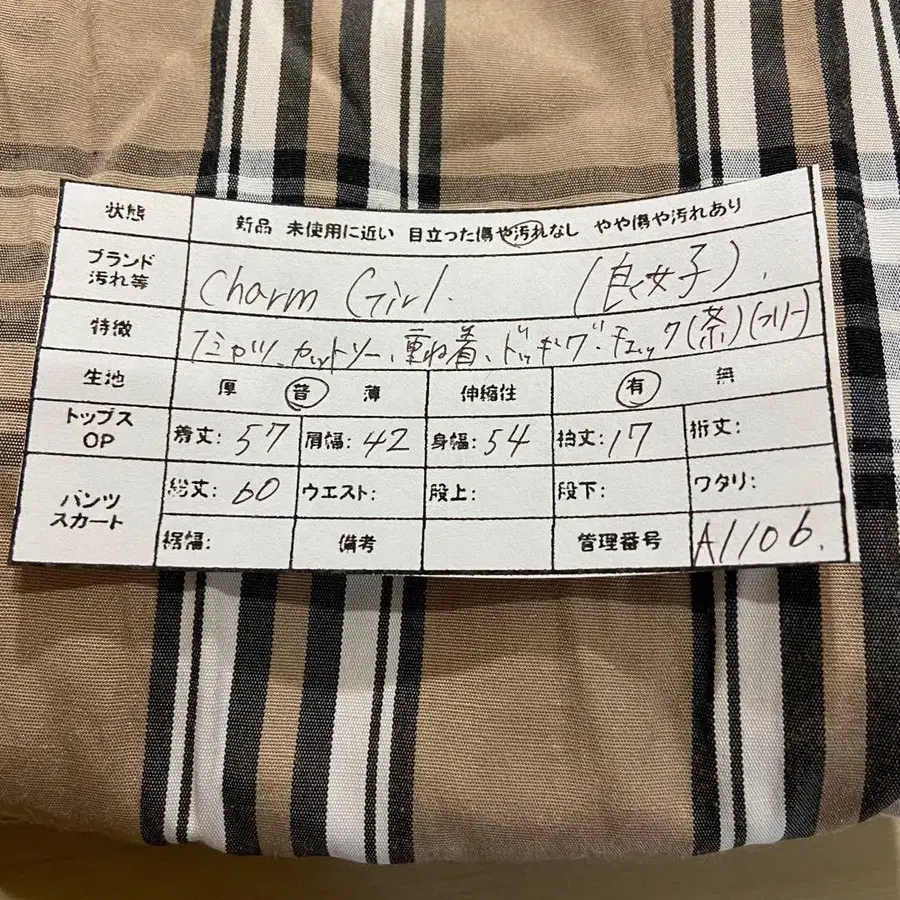 状態 新品 未使用に近い 目立った傷や汚れなし やや傷や汚れあり
ブランド 汚れ等 Charm Girl. (良、女子).
特徴 Tシャツ、カットソー、重ね着、ドッキング・チェック(茶)(フリー)
生地 厚 普 薄 伸縮性 有 無
トップス OP 着丈: 57 肩幅: 42 身幅: 54 袖丈: 17 裄丈:
パンツ スカート 総丈: 60 ウエスト: 股上: 股下: ワタリ:
裾幅: 備考 管理番号 A1106.